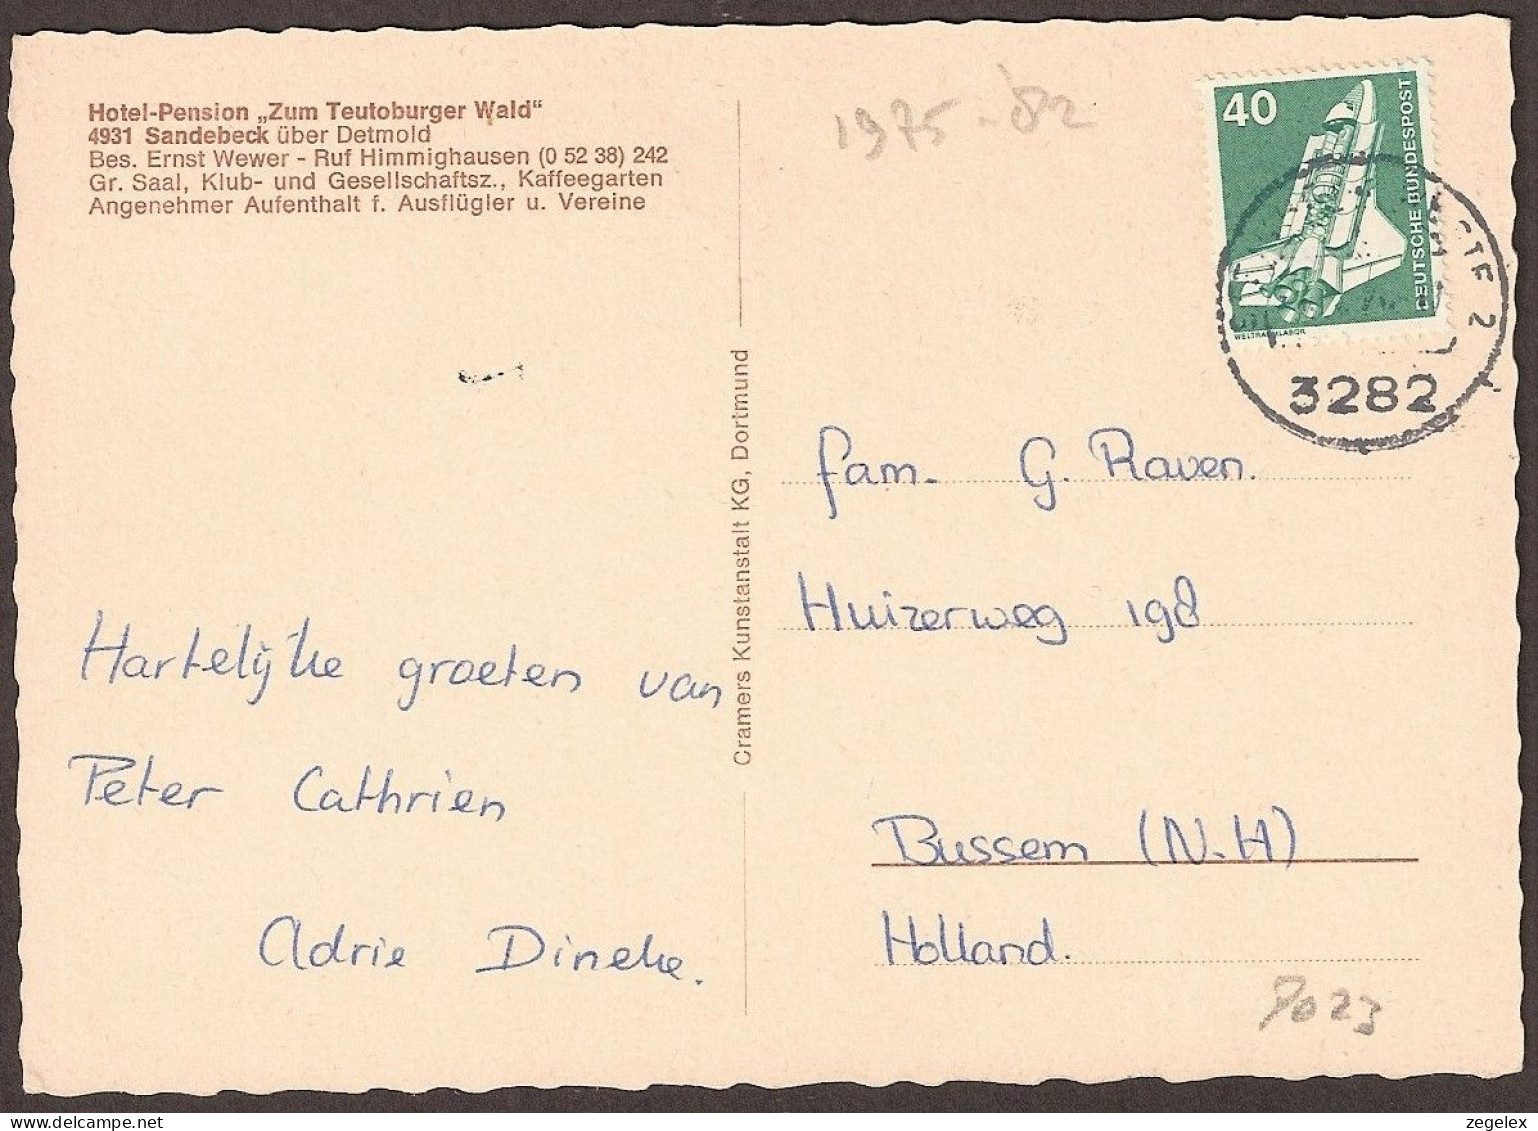 Hotel-Pension „Zum Teutoburger Wald“
4931 Sandebeck über Detmold
Bes. Ernst Wewer - Ruf Himmighausen (0 52 38) 242
Gr. Saal, Klub- und Gesellschaftsz., Kaffeegarten
Angenehmer Aufenthalt f. Ausflügler u. Vereine
1975-82
40
DEUTSCHE BUNDESPOST
WELTRAUMLABOR
2
3282
Cramers Kunstanstalt KG, Dortmund
Hartelijke groeten van
Peter Cathrien
Adrie Dineke.
fam. G. Raven.
Huizerweg 198
Bussem (N-H)
Holland.
9023
hamersveld
zegelex